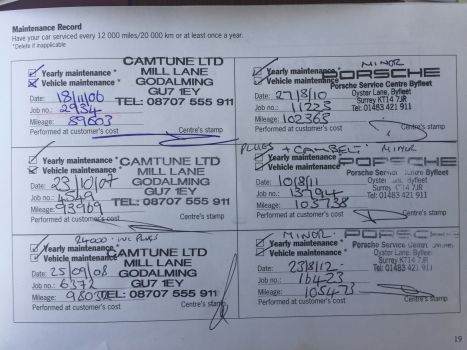 Maintenance Record
Have your car serviced every 12 000 miles/20 000 km or at least once a year.
*Delete if inapplicable
Yearly maintenance*
Vehicle maintenance*
Date: 18/11/06
Job no.: 2934
Mileage: 89603
Performed at customer's cost
Centre's stamp
CAMTUNE LTD
MILL LANE
GODALMING
GU7 1EY
TEL: 08707 555 911
MINOR
Yearly maintenance*
Vehicle maintenance*
Date: 27/8/10
Job no.: 11223
Mileage: 102368
Performed at customer's cost
Centre's stamp
PORSCHE
Porsche Service Centre Byfleet
Oyster Lane, Byfleet
Surrey KT14 7JR
Tel: 01483 421 911
Yearly maintenance*
Vehicle maintenance*
Date: 23/10/07
Job no.: 4549
Mileage: 93969
Performed at customer's cost
Centre's stamp
CAMTUNE LTD
MILL LANE
GODALMING
GU7 1EY
TEL: 08707 555 911
PLUGS + CAMBELT MINOR
Yearly maintenance*
Vehicle maintenance*
Date: 10/8/11
Job no.: 13794
Mileage: 103738
Performed at customer's cost
Centre's stamp
PORSCHE
Porsche Service Centre Byfleet
Oyster Lane, Byfleet
Surrey KT14 7JR
Tel: 01483 421 911
24000 - inc PLUGS
Yearly maintenance*
Vehicle maintenance*
Date: 25/09/08
Job no.: 6372
Mileage:
Performed at customer's cost
Centre's stamp
CAMTUNE LTD
MILL LANE
GODALMING
GU7 1EY
TEL: 08707 555 911
MINOR
Yearly maintenance*
Vehicle maintenance*
Date: 23/8/12
Job no.: 16423
Mileage: 105473
Performed at customer's cost
Centre's stamp
PORSCHE
Porsche Service Centre
Oyster Lane, Byfleet
Surrey KT14 7JR
Tel: 01483 421 911
19